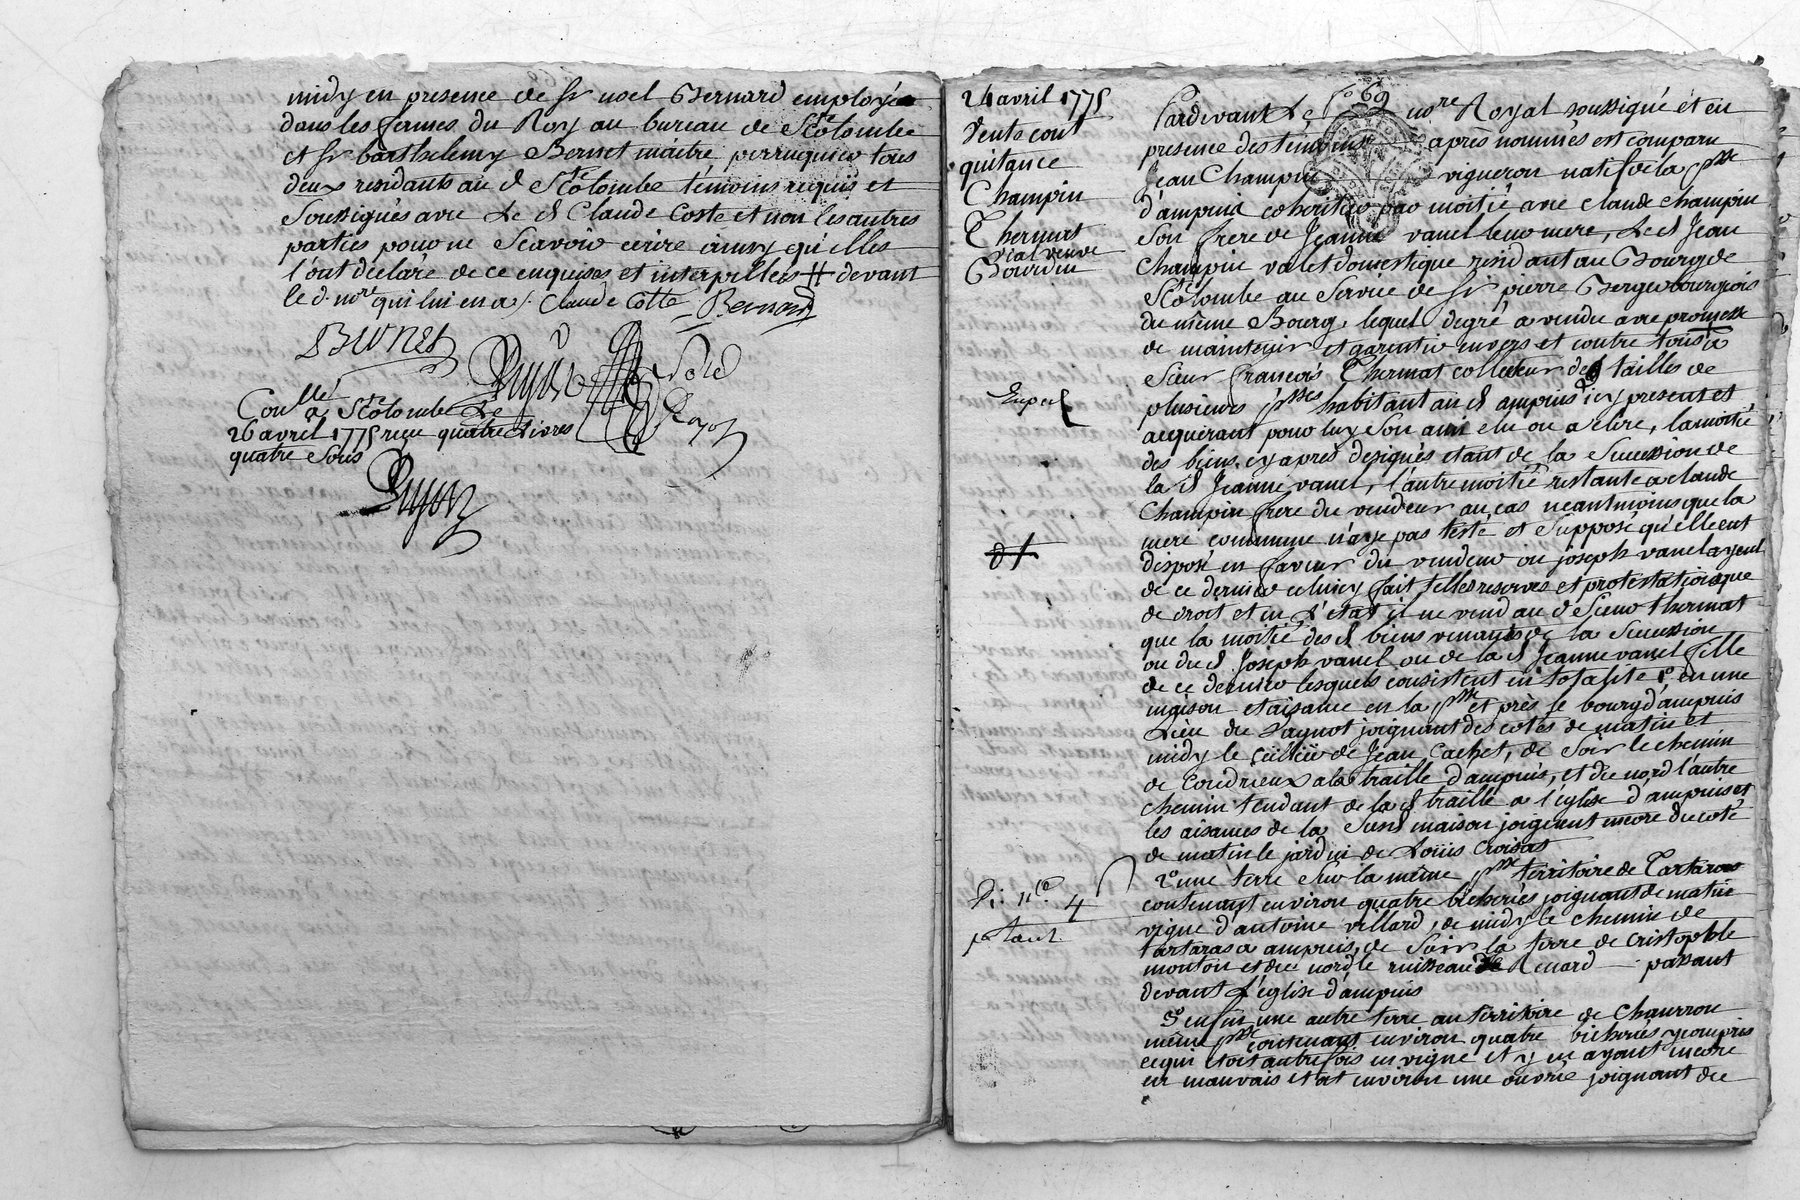 midy en presence de Sr noel Bernard employé
dans les fermes du Roy au bureau de Ste Colombe
et Sr barthelemy Bernet maitre perruquier tous
deux residants au d Ste Colombe témoins requis et
Soussignés avec Le d Claude Coste et non les autres
parties pour ne Scavoir ecrire ainsy qu'elles
l'ont declaré de ce enquises et interpellées # devant
le d. nore qui lui en a /. Claude Cotte Bernard
Bernet
Conllé a Ste Colombe Le
26 avril 1775 reçu quatre Livres
quatre Sous
24 avril 1775
Vente cont
quitance
Champin
Thermat
vial veuve
Bourdin
fo 69
Pardevant Le nore Royal soussigné et en
presence des temoins après nommés est comparu
Jean Champin vigneron natif de la psse
d'ampuis coheritier par moitié avec claude champin
Son frere de Jeanne vanel leur mere, Le d Jean
Champin valet domestique residant au Bourg de
Ste Colombe au Service de Sr pierre Berger bourgeois
du même Bourg, lequel degré a vendu avec promesse
de maintenir et garentir envers et contre tous a
Sieur françois Thermat collecteur des tailles de
plusieurs psses habitant au d ampuis icy present et
acquerant pour luy Son ami elu ou a elire, la moitié
des biens cy après designés etant de la Succession de
la d Jeanne vanel, l'autre moitié restante a claude
Champin frere du vendeur au cas neantmoins que la
mere commune n'aye pas testé et Supposé qu'elle eut
disposé en faveur du vendeur ou joseph vanel ayeul
de ce dernier celuicy fait telles reserves et protestations que
de droit et en L'etat il ne vend au d Sieur thermat
que la moitié des d biens venants de la Succession
ou du d Joseph vanel ou de la d Jeanne vanel fille
de ce dernier lesquels consistent en totalité 1o en une
maison et aisance en la psse et près le bourg d'ampuis
Lieu du joignant des cotés de matin et
midy le de Jean Cachet, de Soir le chemin
de Condrieux a la traille d'ampuis, et du nord l'autre
chemin tendant de la d traille a l'église d'ampuis et
les aisances de la Susd maison joignent encore du coté
de matin le jardin de Loüis Croisas
2o une terre Sur la même psse territoire de Tartaras
contenant environ quatre bicherées joignant de matin
vigne d'antoine villard, de midy le chemin de
tartaras a ampuis, de Soir la terre de Cristophle
monton et du nord le ruisseau de Renard passant
devant L'église d'ampuis
3o enfin une autre terre au territoire de Chauvron
même psse contenant environ quatre bicherées y compris
ce qui etoit autrefois en vigne et y en ayant encore
en mauvais etat environ une ouvrée joignant du